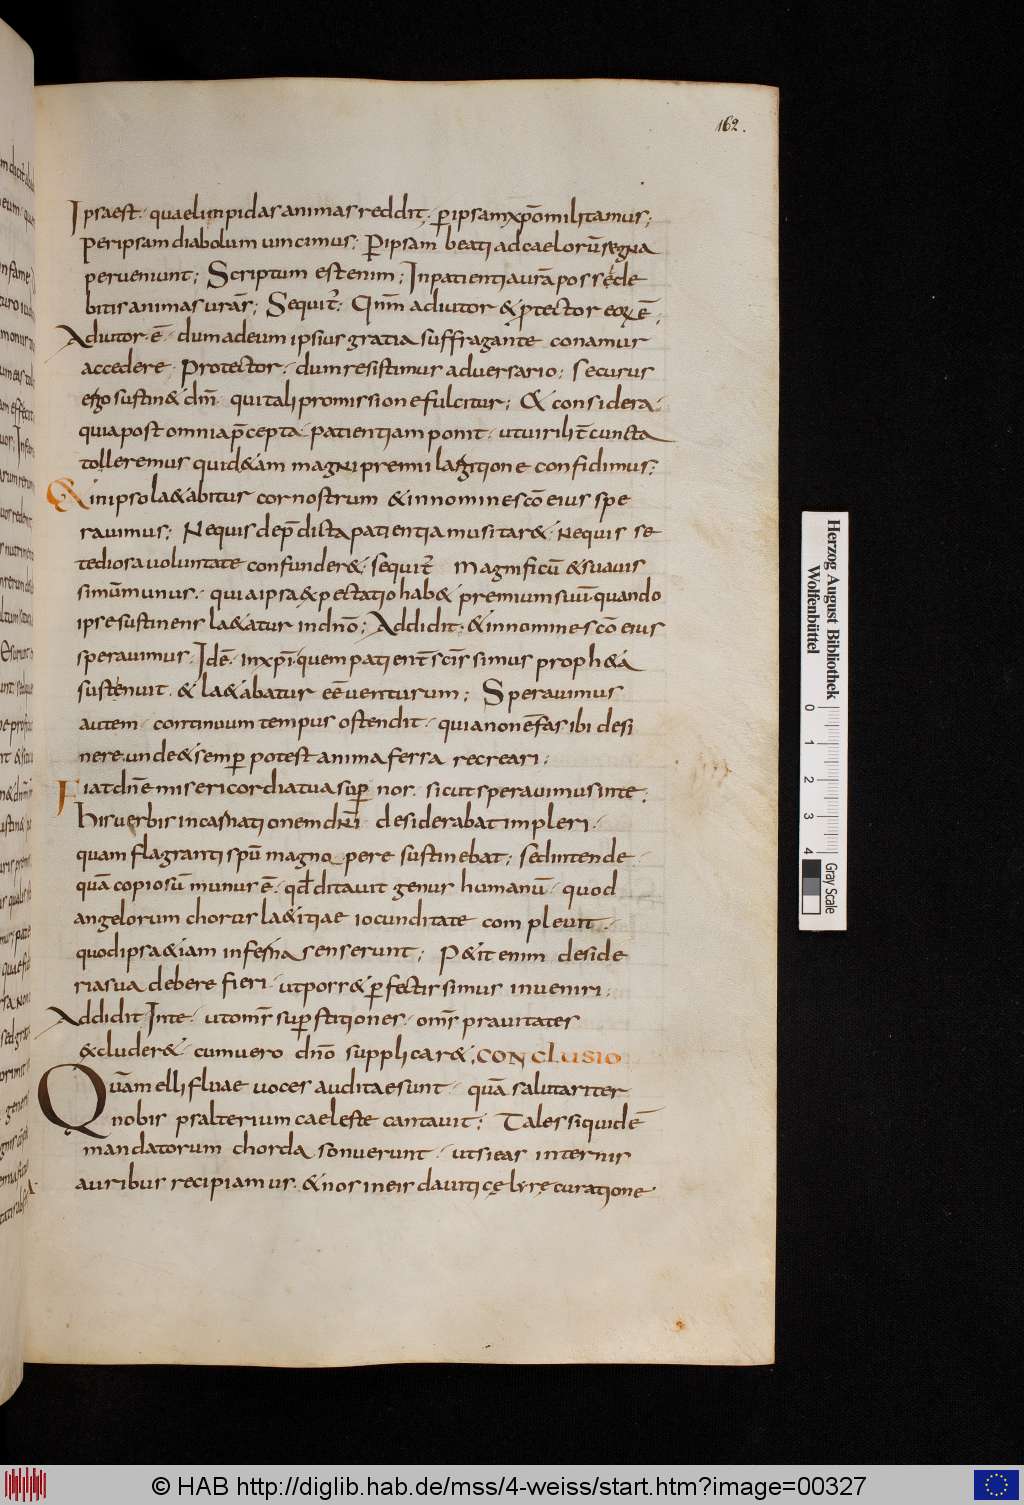 162.
Ipsa est. quae limpidas animas reddit. p̄ ipsam xp̄o militamus;
Per ipsam diabolum uincimus; P̄ ipsam beati ad caelorū regna
perueniunt; Scriptum est enim; In patientia ur̄a possede
bitis animas urās; Sequit̄; Qm̄ adiutor & p̄tector eoꝝ ē;
Adiutor ē. dum ad eum ipsius gratia suffragante conamur
accedere. Protector. dum resistimus aduersario; Securus
ergo sustin& dn̄m qui tali promissione fulcitur; Et considera.
quia post omnia p̄cepta. patientiam ponit. ut uirilit̄ cuncta
tolleremus quid&iam magni premii largitione confidimus;
Et in ipso la&abitur cor nostrum & in nomine sc̄o eius spe
rauimus; Nequis de p̄dicta patientia musitar&. Nequis se
tediosa uoluntate confunder&. sequit̄ Magnificū & suauis
simū munus. quia ipsa expectatio hab& premium suū. quando
ipse sustinens la&atur in dn̄o; Addidit. & in nomine sc̄o eius
sperauimus. Idē. in xp̄i. quem patient̄ scīssimus proph&a
sustenuit. & la&abatur eē uenturum; Sperauimus
autem. continuum tempus ostendit. quia non ē fas ibi desi
nere. unde & semp̄ potest anima fessa recreari;
Fiat dn̄e misericordia tua sup̄ nos. sicut sperauimus in te;
His uerbis incarnationem dn̄i desiderabat impleri.
quam flagranti spū magno pere sustinebat; sed intende.
quā copiosū munus ē. qđ ditauit genus humanū. quod
angelorum chorus la&itiae iocunditate compleuit.
quod ipsa &iam inferna senserunt; P&it enim deside
ria sua debere fieri. ut possˀ& p̄fectissimus inueniri;
Addidit. In te. ut om̄s sup̄stitiones. om̄s prauitates
excluder&. cum uero dn̄o supplicar&. CONCLUSIO
Quā mellifluae uoces auditae sunt. quā salutariter
nobis psalterium caeleste cantauit; Tales siquidē
mandatorum chorda sonuerunt. ut si eas internis
auribus recipiamus. & nos in eis dauitice lyre curatione
Herzog August Bibliothek
Wolfenbüttel
0 1 2 3 4
Gray Scale
© HAB http://diglib.hab.de/mss/4-weiss/start.htm?image=00327